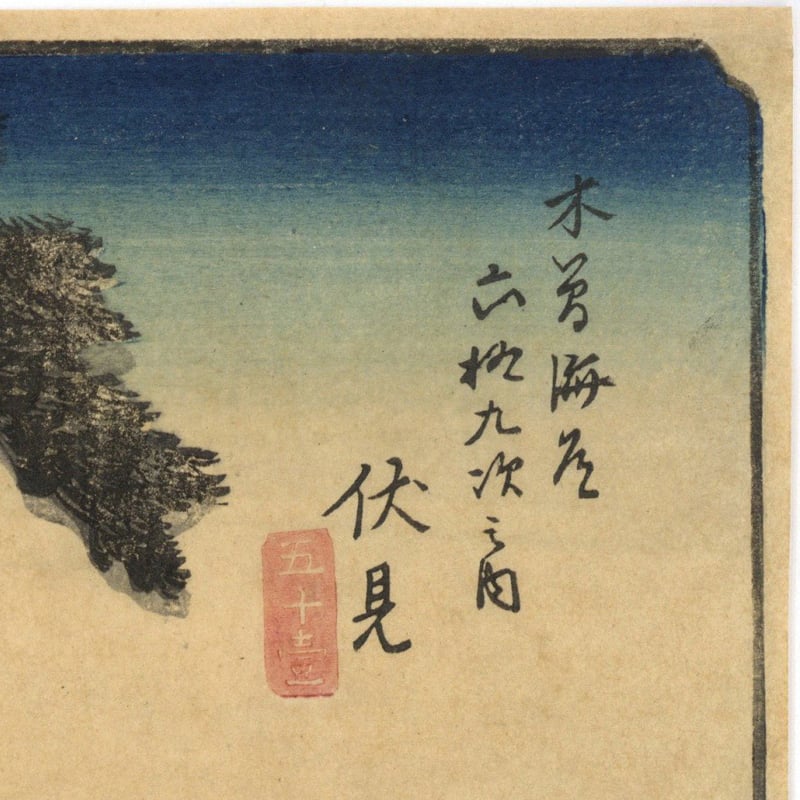 木曽海道
六拾九次之内
伏見
五十壹